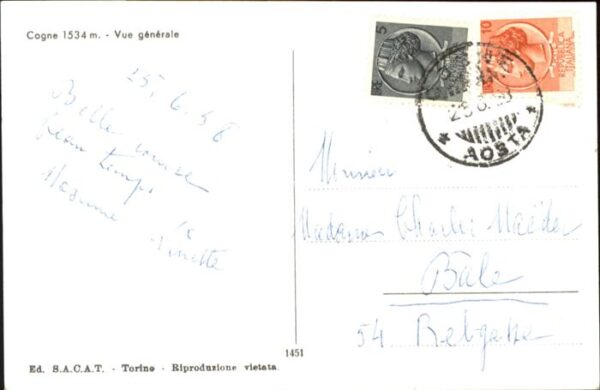 Cogne 1534 m. - Vue générale
25.6.58
Belle course
beau temps
5
10
REPUBBLICA
ITALIANA
AOSTA
Monsieur
Madame Charles Maeder
Bâle
54
1451
Ed. S.A.C.A.T. - Torino - Riproduzione vietata